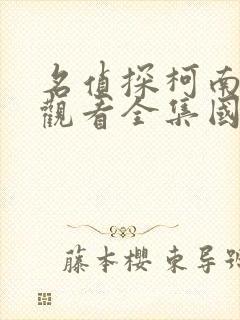 名偵探柯南
觀看全集國
藤本櫻 東导